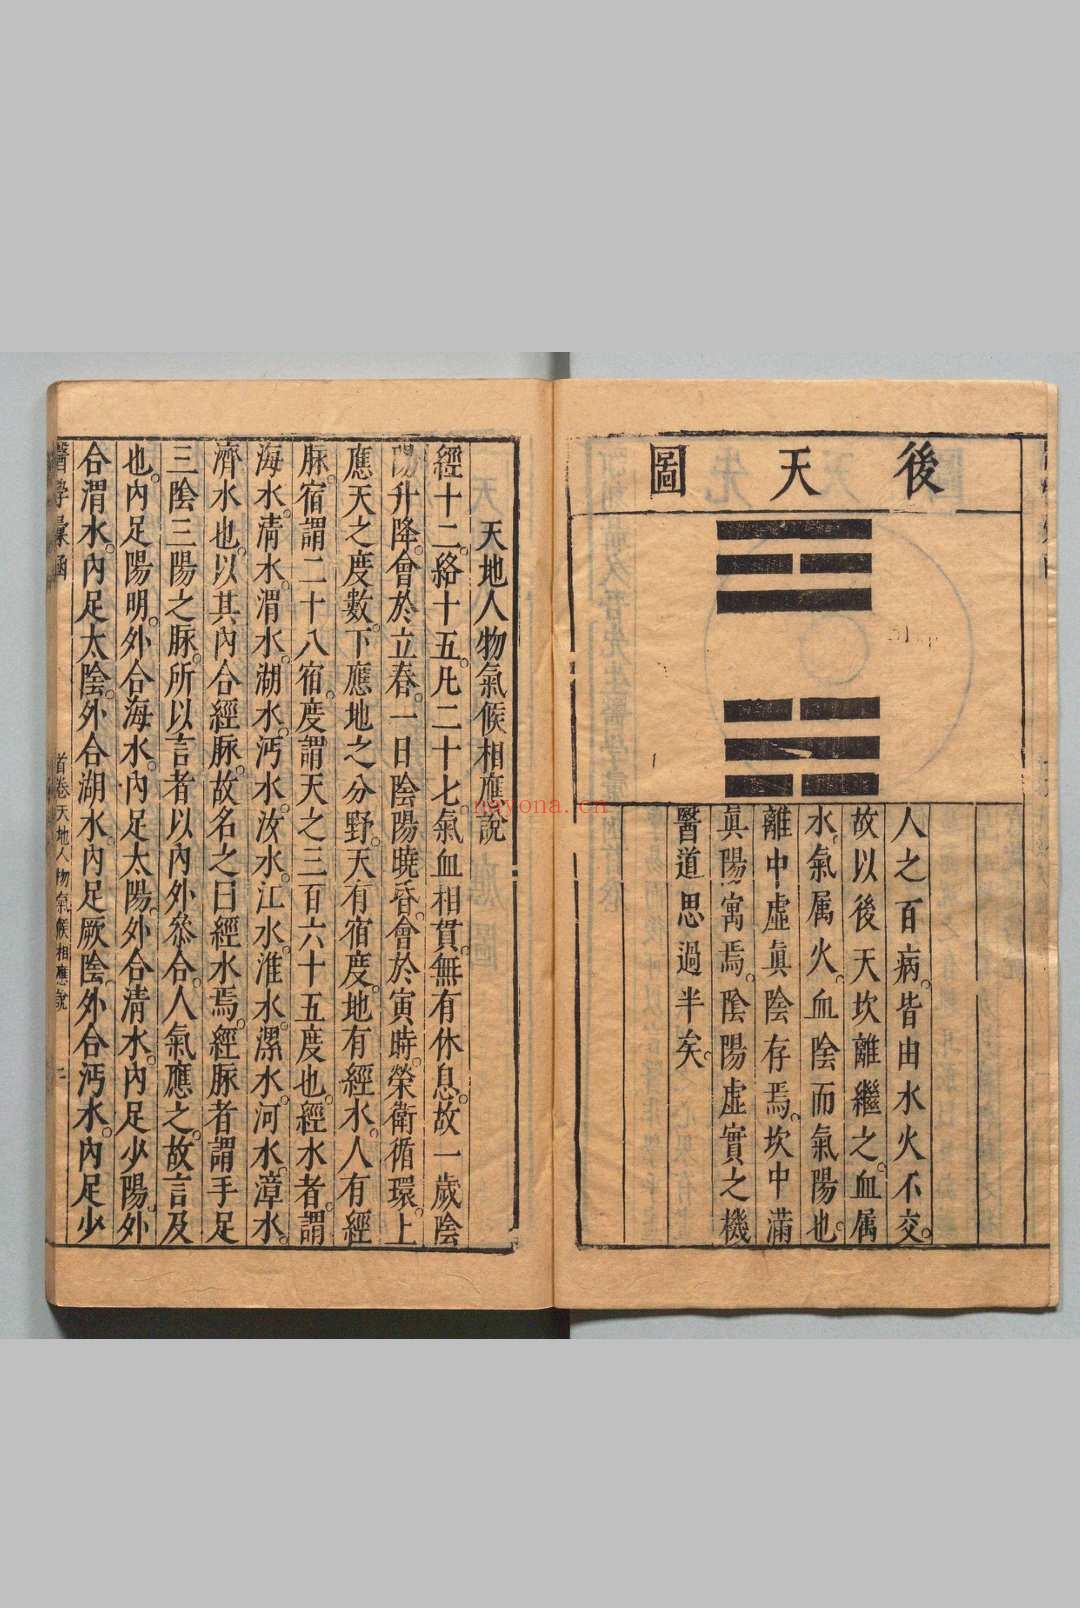 後天圖
人之百病。皆由水火不交。
故以後天坎離繼之。血属
水。氣属火。血陰而氣陽也。
離中虛。眞陰存焉。坎中滿。
眞陽寓焉。陰陽虛實之機
醫道思過半矣。
天地人物氣候相應說
經十二。絡十五。凡二十七。氣血相貫。無有休息。故一歲陰
陽升降。會於立春。一日陰陽曉昏。會於寅時。榮衛循環。上
應天之度數。下應地之分野。天有宿度。地有經水。人有經
脉。宿謂二十八宿。度謂天之三百六十五度也。經水者。謂
海水。清水。渭水。湖水。沔水。汝水。江水。淮水。漯水。河水。漳水。
濟水也。以其內合經脉。故名之曰經水焉。經脈者謂手足
三陰三陽之脉。所以言者以內外叅合。人氣應之。故言及
也。內足陽明。外合海水。內足太陽。外合清水。內足少陽。外
合渭水。內足太陰。外合湖水。內足厥陰。外合沔水。內足少
醫學彙函
首卷天地人物氣候相應說
二
nayona.cn